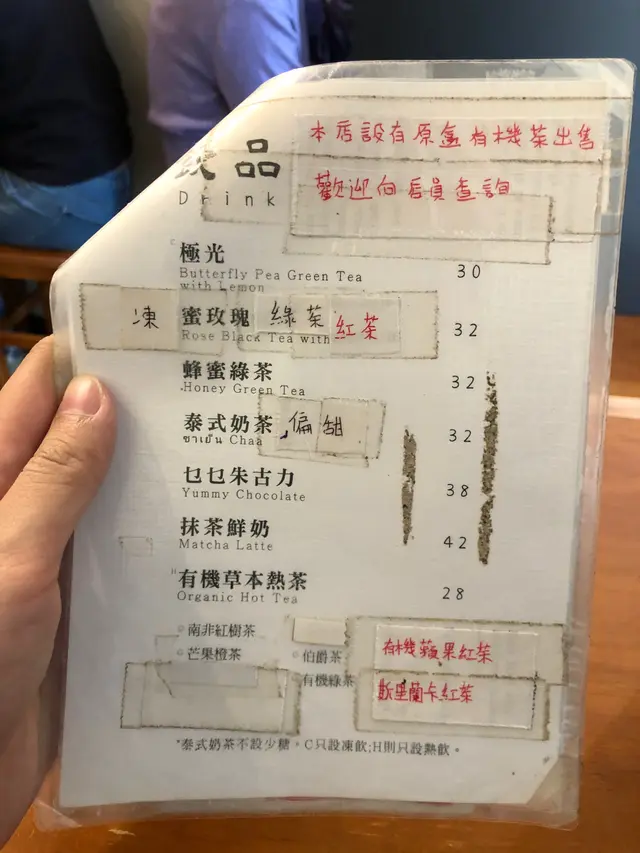 本店設有原盒有機茶出售
歡迎向店員查詢
品
Drink
C 極光 30
Butterfly Pea Green Tea
with Lemon
凍 蜜玫瑰 綠茶 紅茶 32
Rose Black Tea with
蜂蜜綠茶 32
Honey Green Tea
泰式奶茶,偏甜 32
ชาเย็น Chaa
乜乜朱古力 38
Yummy Chocolate
抹茶鮮奶 42
Matcha Latte
H 有機草本熱茶 28
Organic Hot Tea
南非紅樹茶
有機蘋果紅茶
芒果橙茶 伯爵茶
有機綠茶 斯里蘭卡紅茶
*泰式奶茶不設少糖。C只設凍飲;H則只設熱飲。